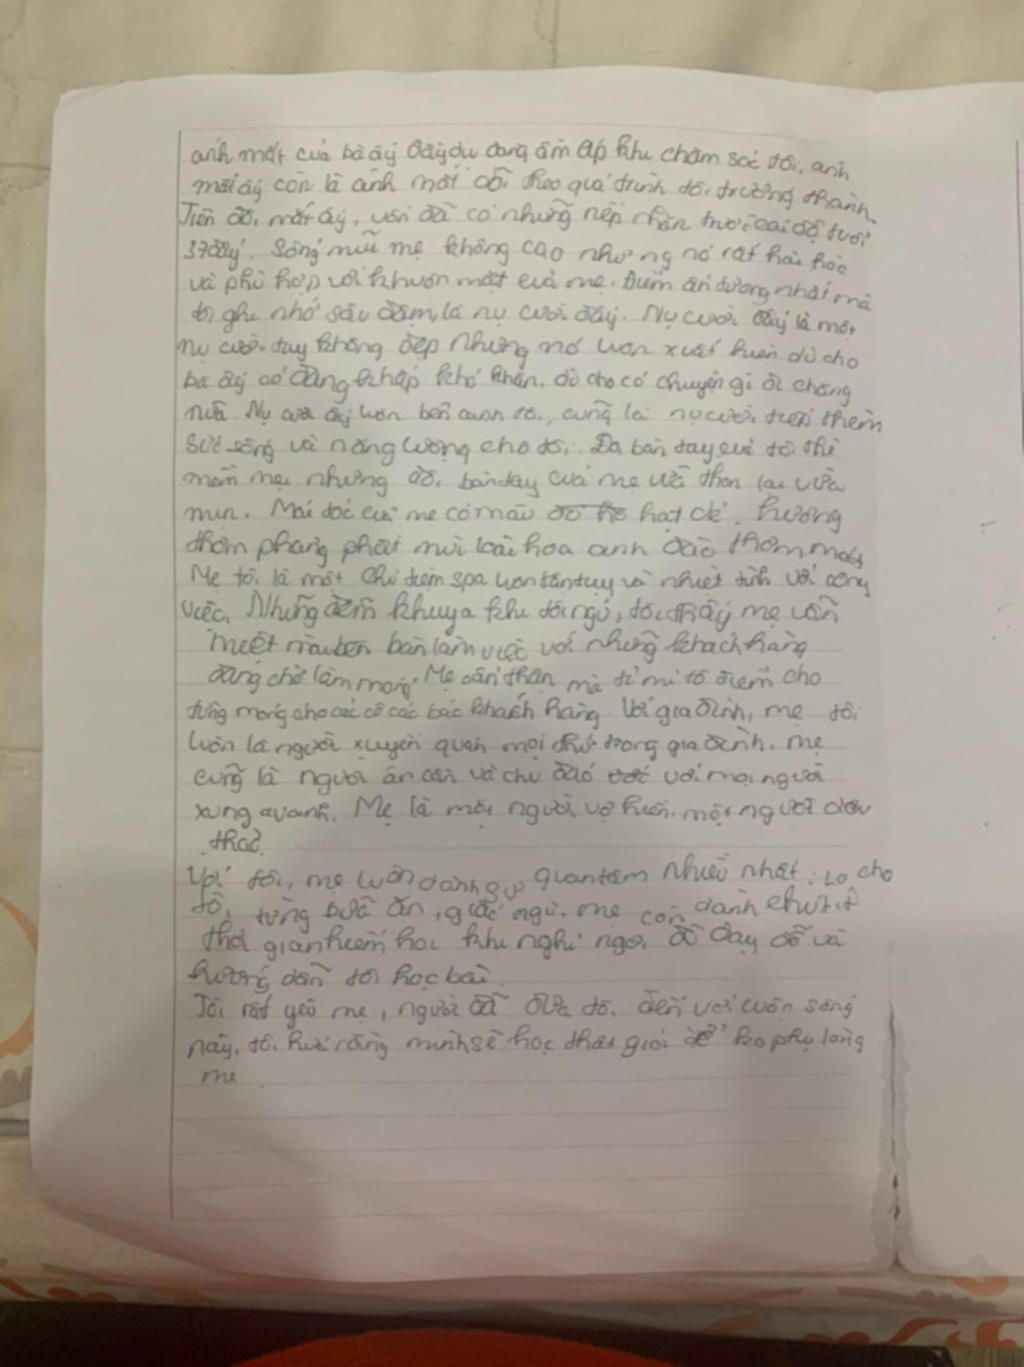 ánh mắt của bà ấy đầy dịu dàng ấm áp khi chăm sóc tôi, ánh
mắt ấy còn là ánh mắt dõi theo quá trình tôi trưởng thành.
Trên đôi mắt ấy, vẫn đã có những nếp nhăn trước cái độ tuổi
37 đấy. Sống mũi mẹ không cao nhưng nó rất hài hòa
và phù hợp với khuôn mặt của mẹ. Điểm ấn tượng nhất mà
tôi ghi nhớ sâu đậm là nụ cười đấy. Nụ cười đấy là một
nụ cười tuy không đẹp nhưng nó luôn xuất hiện dù cho
bà ấy có đang khó khăn, dù cho có chuyện gì đi chăng
nữa. Nụ cười ấy luôn bên cạnh tôi, cũng là nụ cười tiếp thêm
sức sống và năng lượng cho tôi. Da bàn tay của tôi thì
mềm mại nhưng đôi bàn tay của mẹ vừa thon lại vừa
mịn. Mái tóc của mẹ có màu hạt dẻ, hương
thơm phang phất mùi loài hoa anh đào thơm mát
Mẹ tôi là một chủ tiệm spa luôn tận tụy và nhiệt tình với công
việc. Những đêm khuya khi tôi ngủ, tôi thấy mẹ vẫn
miệt mài bên bàn làm việc với những khách hàng
đang chờ làm móng. Mẹ cẩn thận mà tỉ mỉ tô điểm cho
từng móng cho các cô các bác khách hàng. Với gia đình, mẹ tôi
luôn là người xuyên quán mọi thứ trong gia đình. Mẹ
cũng là người ân cần và chu đáo với mọi người
xung quanh. Mẹ là một người vợ hiền, một người dâu
thảo.
Với tôi, mẹ luôn dành sự quan tâm nhiều nhất: Lo cho
tôi từng bữa ăn, giấc ngủ. mẹ còn dành chút ít
thời gian hiếm hoi khi nghỉ ngơi để dạy dỗ và
hướng dẫn tôi học bài.
Tôi rất yêu mẹ, người đã đưa tôi đến với cuộc sống
này, tôi hứa rằng mình sẽ học thật giỏi để ko phụ lòng
mẹ.